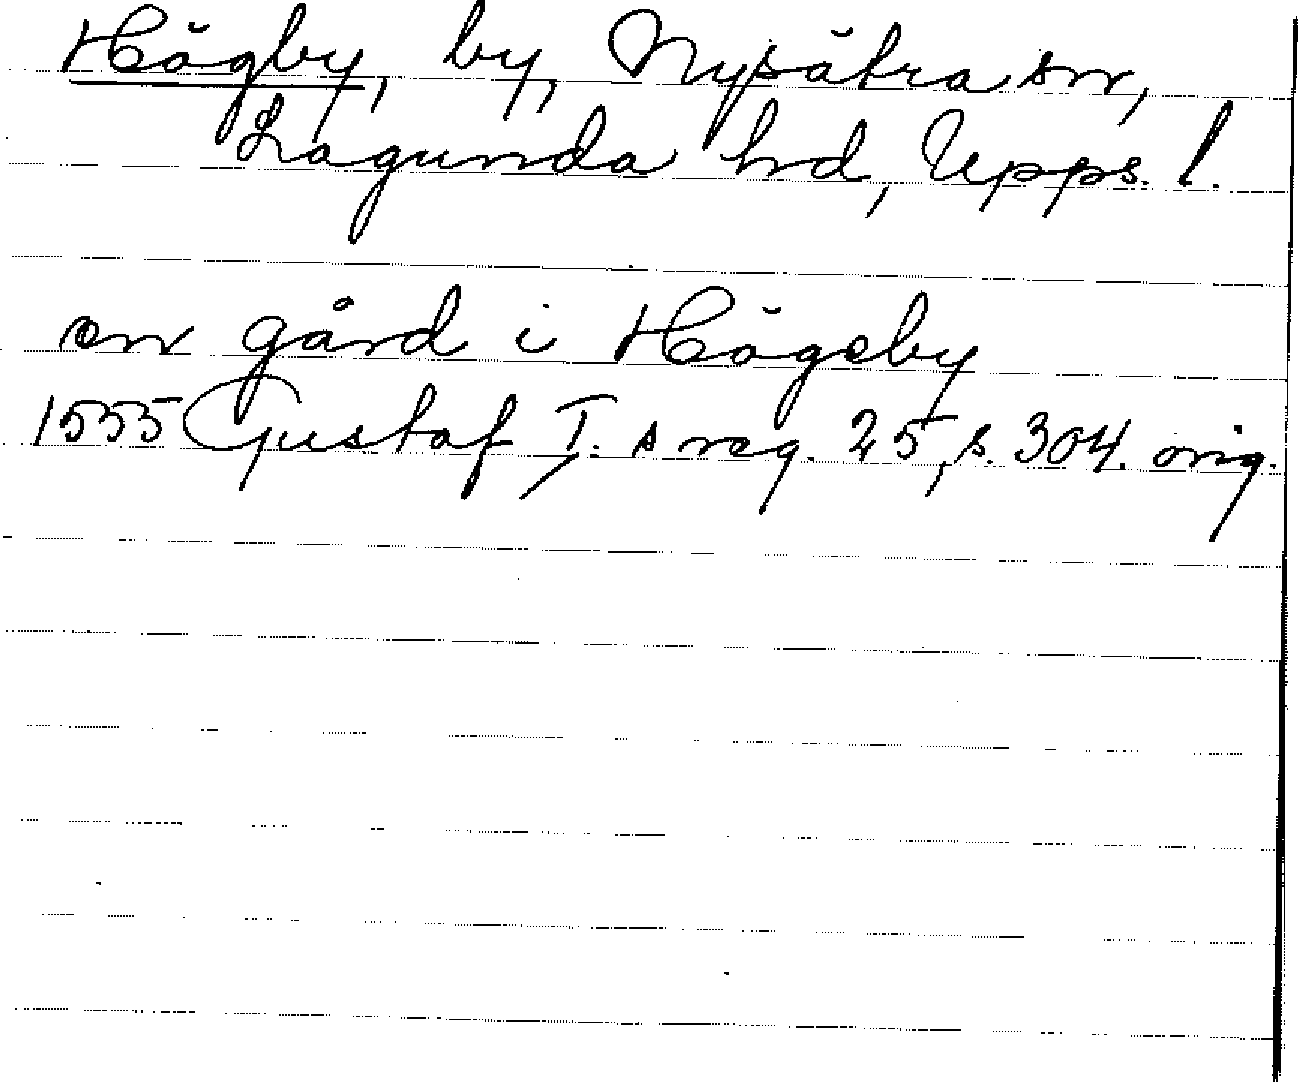 Högby, by, Nysätra sn,
Lagunda hd, Upps. l.
en gård i Högeby
1555 Gustaf I:s reg. 25, s. 304. orig.